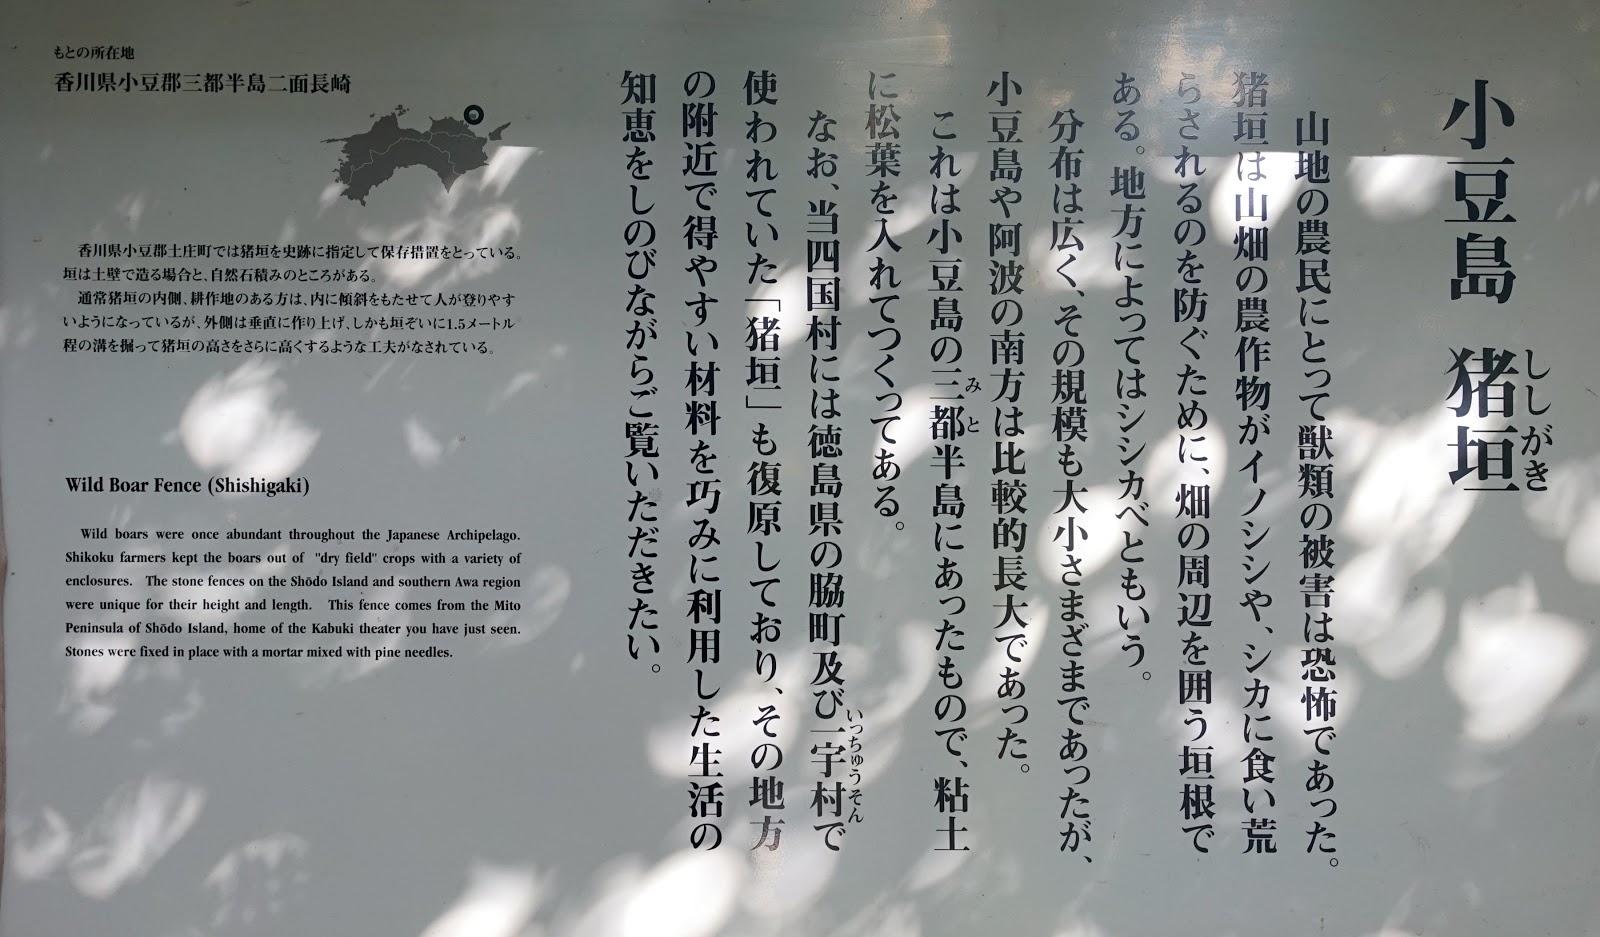 小豆島 猪垣
ししがき
山地の農民にとって獣類の被害は恐怖であった。
猪垣は山畑の農作物がイノシシや、シカに食い荒
らされるのを防ぐために、畑の周辺を囲う垣根で
ある。地方によってはシシカベともいう。
分布は広く、その規模も大小さまざまであったが、
小豆島や阿波の南方は比較的長大であった。
これは小豆島の三都半島にあったもので、粘土
みと
に松葉を入れてつくってある。
なお、当四国村には徳島県の脇町及び一宇村で
いっちゅうそん
使われていた「猪垣」も復原しており、その地方
の附近で得やすい材料を巧みに利用した生活の
知恵をしのびながらご覧いただきたい。
もとの所在地
香川県小豆郡三都半島二面長崎
香川県小豆郡土庄町では猪垣を史跡に指定して保存措置をとっている。
垣は土壁で造る場合と、自然石積みのところがある。
通常猪垣の内側、耕作地のある方は、内に傾斜をもたせて人が登りやす
いようになっているが、外側は垂直に作り上げ、しかも垣ぞいに1.5メートル
程の溝を掘って猪垣の高さをさらに高くするような工夫がなされている。
Wild Boar Fence (Shishigaki)
Wild boars were once abundant throughout the Japanese Archipelago.
Shikoku farmers kept the boars out of "dry field" crops with a variety of
enclosures. The stone fences on the Shōdo Island and southern Awa region
were unique for their height and length. This fence comes from the Mito
Peninsula of Shōdo Island, home of the Kabuki theater you have just seen.
Stones were fixed in place with a mortar mixed with pine needles.